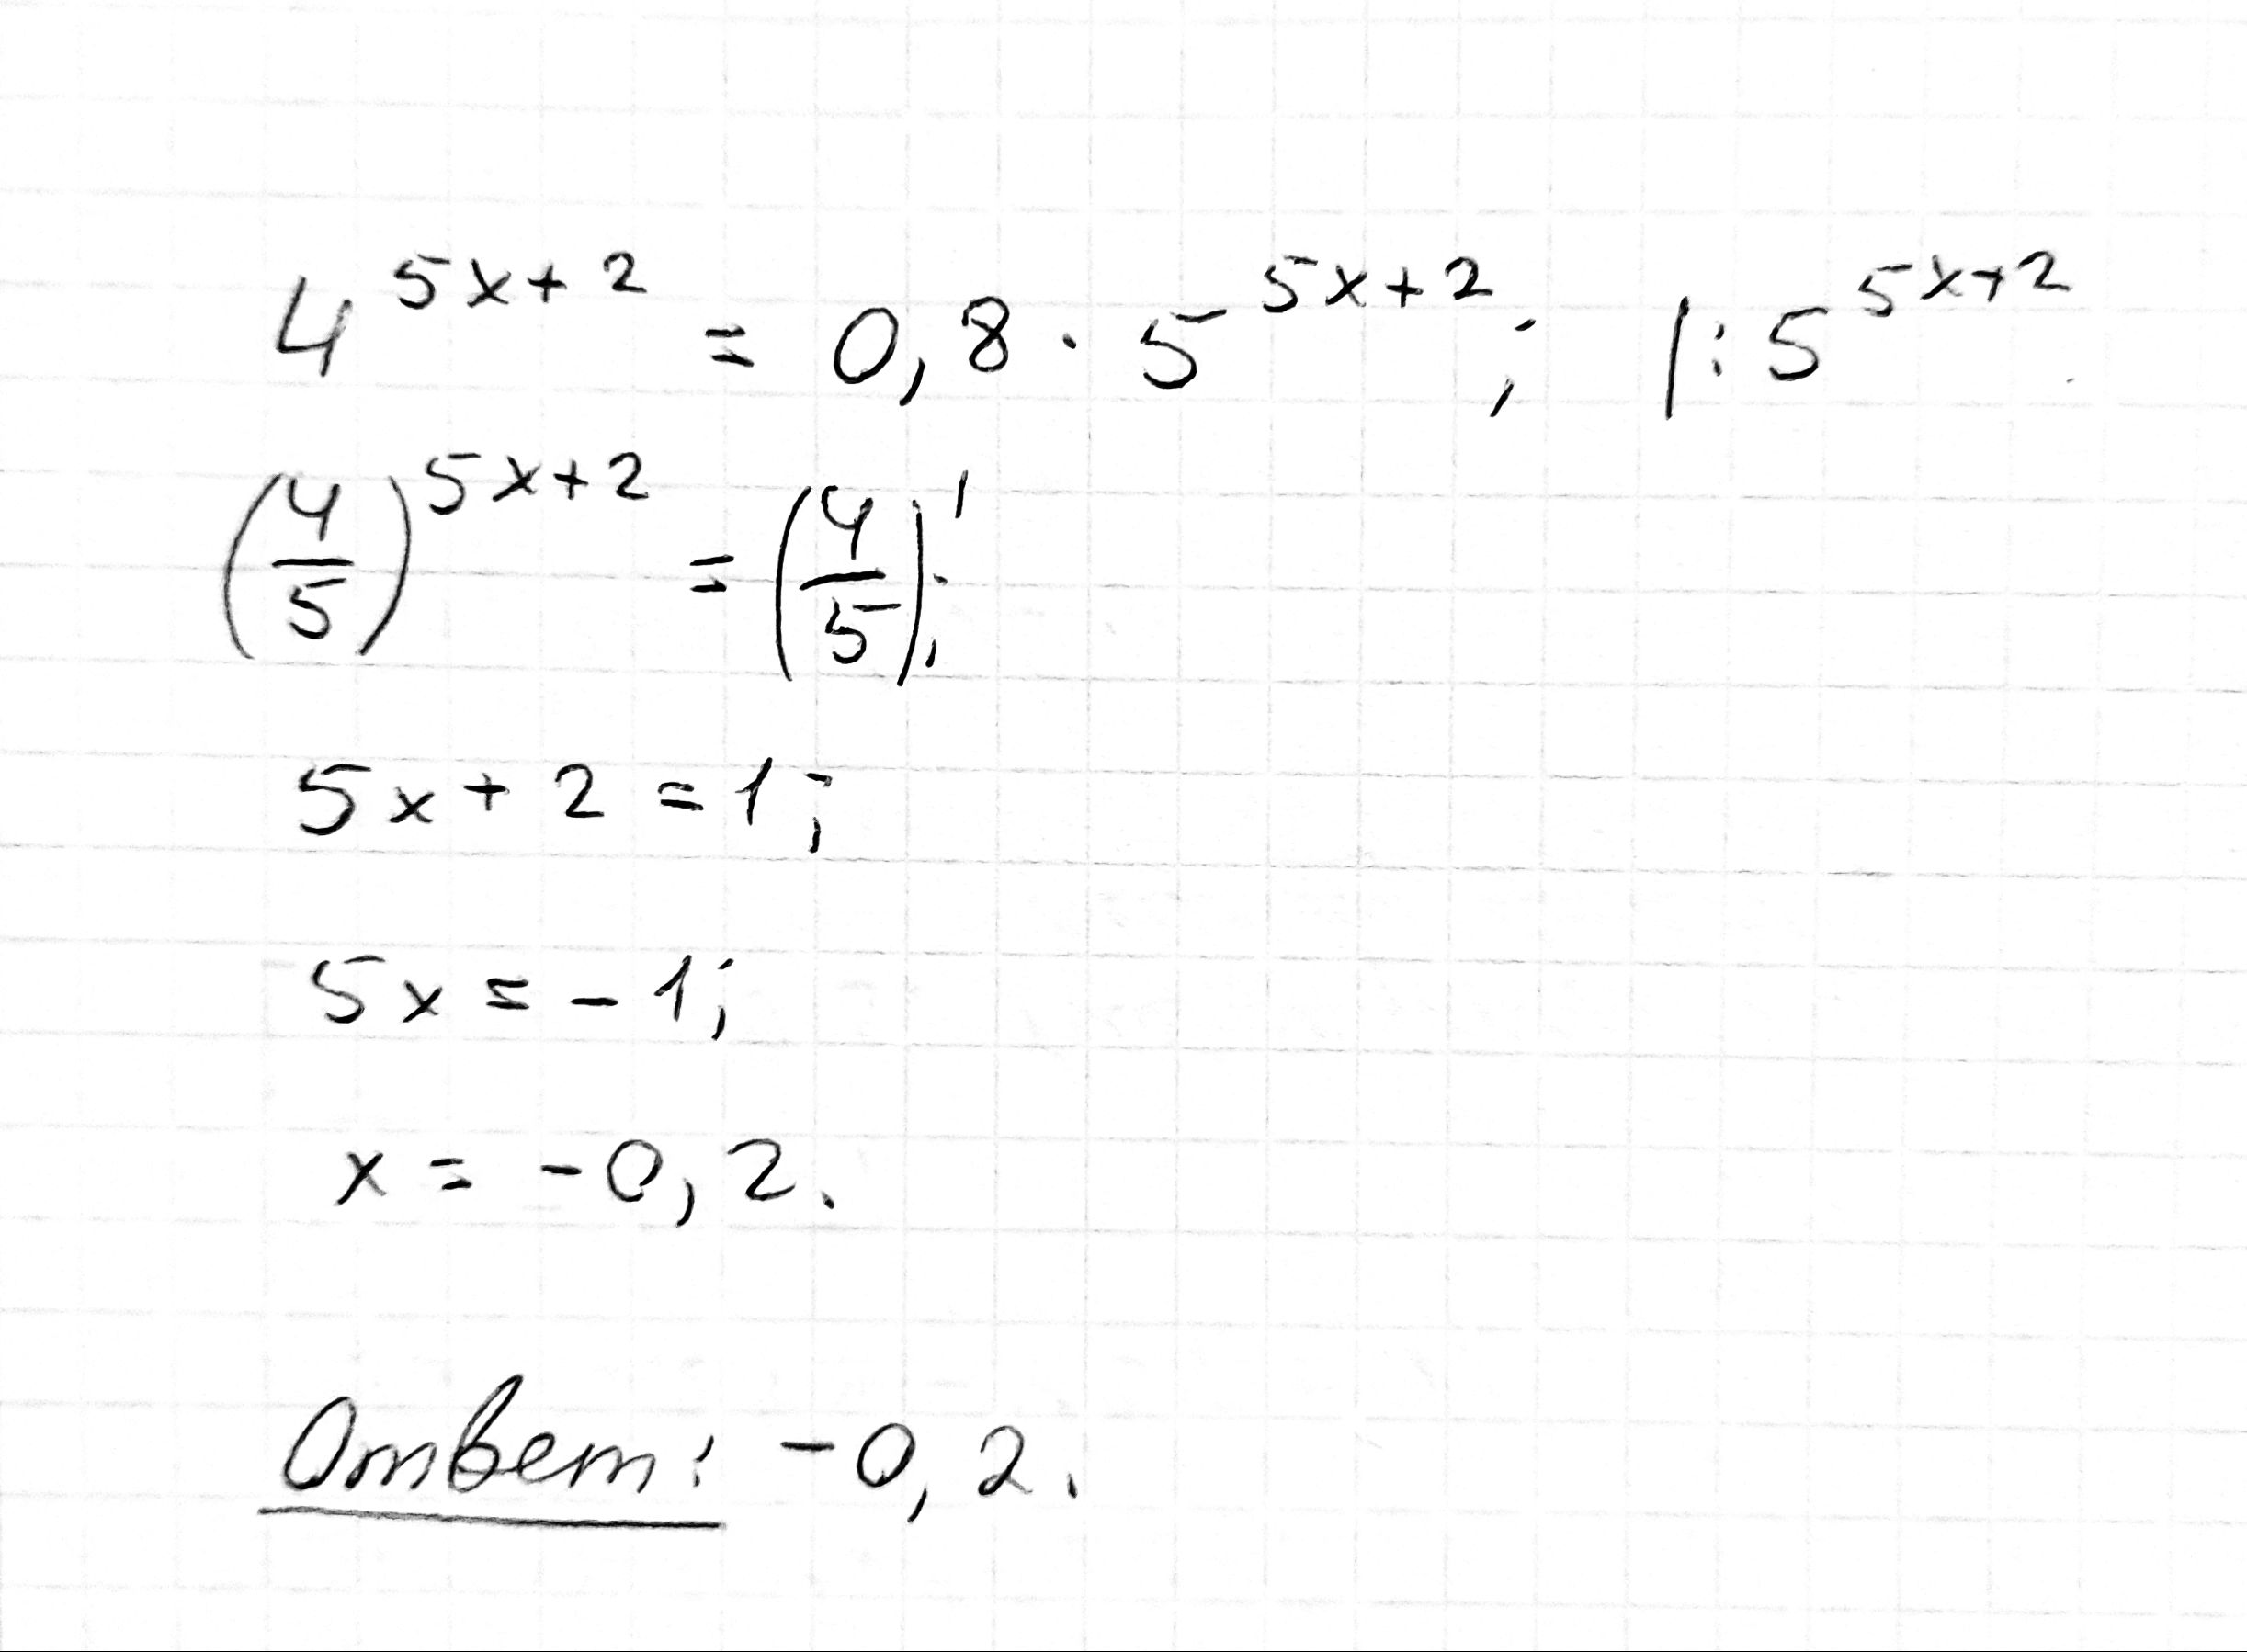 4^{5x+2} = 0,8 · 5^{5x+2}; |: 5^{5x+2}
(4/5)^{5x+2} = (4/5)^1;
5x + 2 = 1;
5x = -1;
x = -0,2.
Ответ: -0,2.